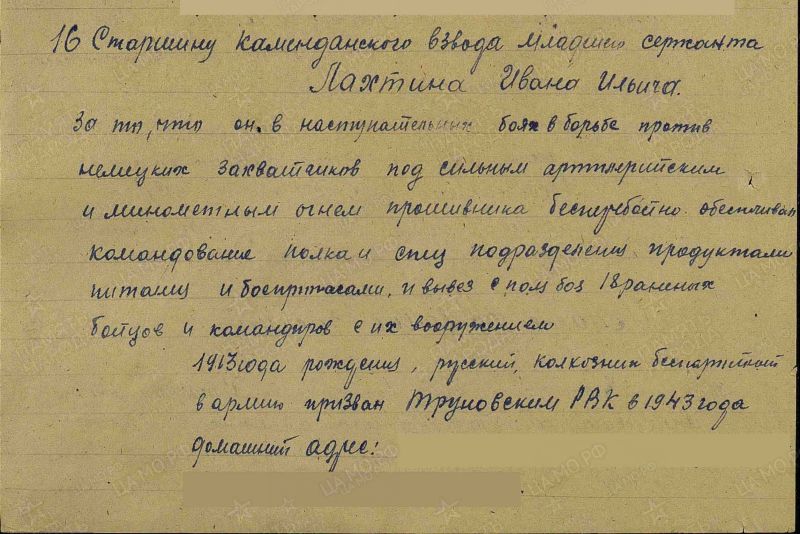 16 Старшину каменданского взвода младшего сержанта
Лахтина Ивана Ильича.
За то, что он в наступательных боях в борьбе против
немецких захватчиков под сильным артилерийским
и минометным огнем противника бесперебойно обеспечивал
командование полка и спец подразделения продуктами
питания и боеприпасами, и вывез с поля боя 18 раненых
бойцов и командиров с их вооружением
1913 года рождения, русский, колхозник беспартийный,
в армию призван Труновским РВК в 1943 года
домашний адрес: